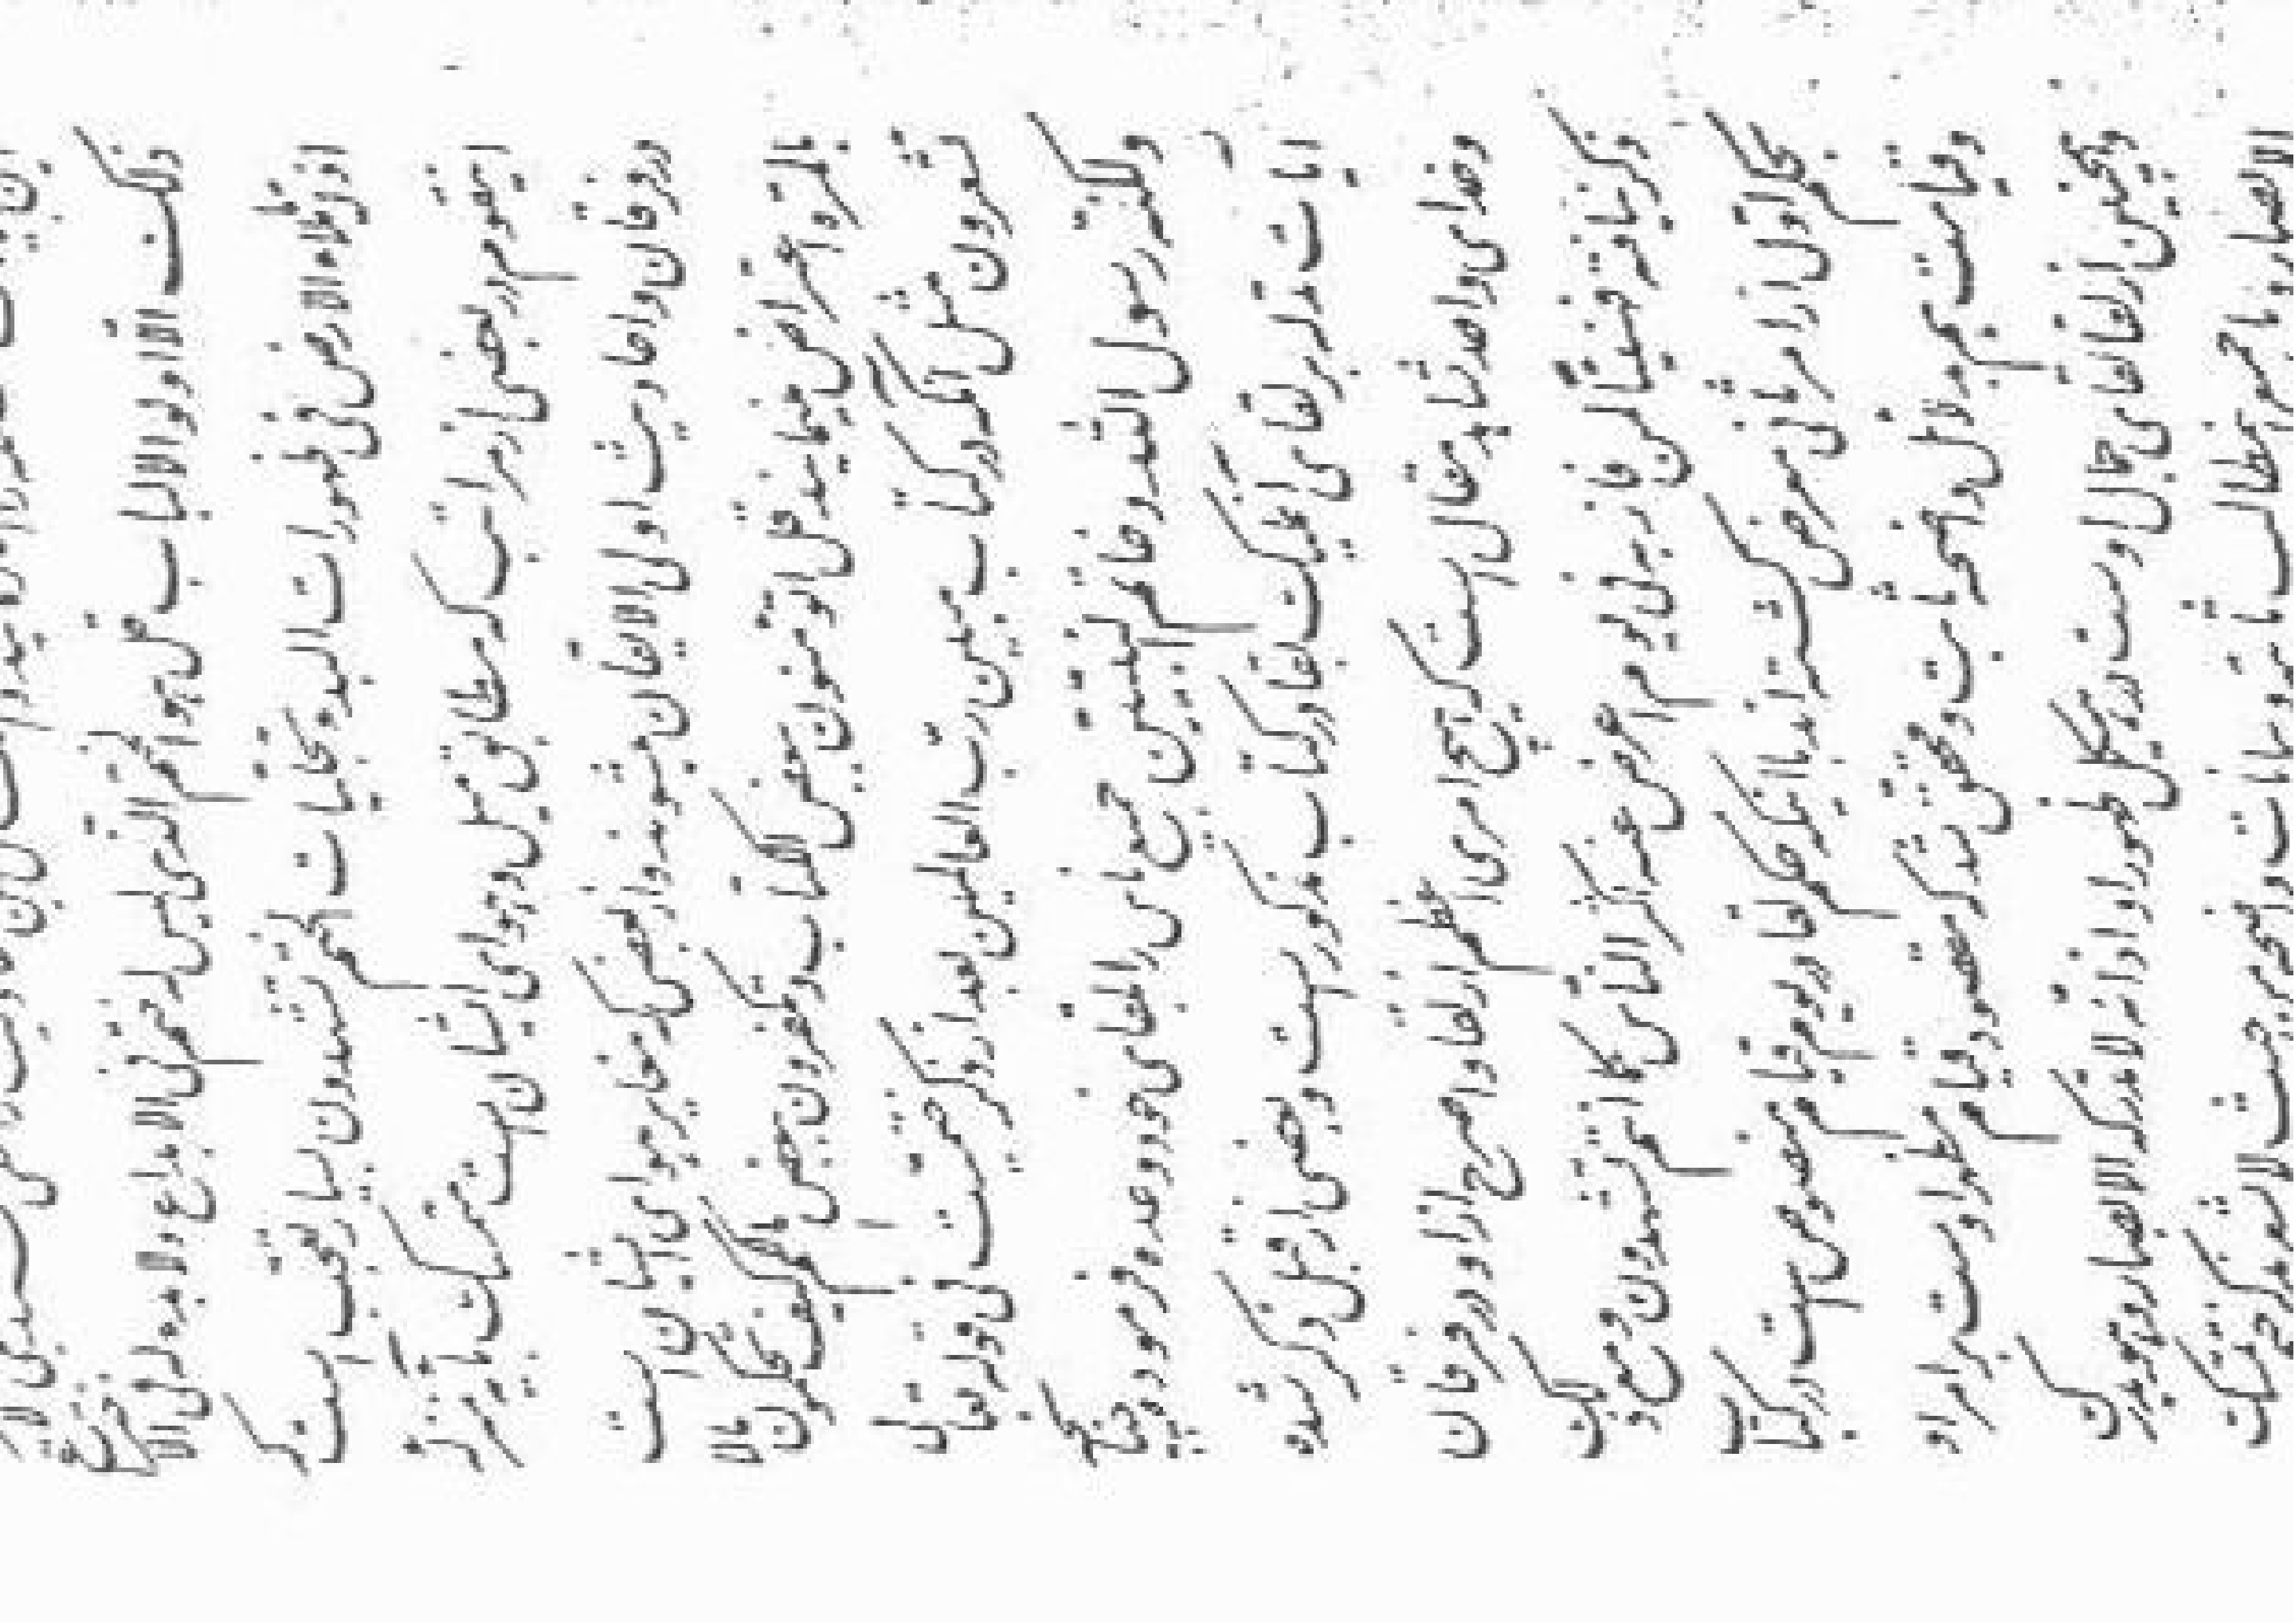 وذلک الا اولو الالباب قل هو الختم الذی لیس له ختم فی الابداع ولا بدء له فی الاختراع
اذا یا ملاء الارض فی ظهورات البدء تجلیات الختم تشهدون بسیار تعجب است که
اینقوم در بعضی از مراتب که مطابق میل و هوای ایشان است متمسک بآیه منزله
در فرقان و احادیث اولی الایقان میشوند و از بعضی که مغایر هوای ایشان است
بالمره اعراض مینمایند قل اتؤمنون ببعض الکتاب و تکفرون ببعض مالکم کیف تحکمون مالا
تشعرون مثل آنکه در کتاب مبین رب العالمین بعد از ذکر ختمیت فی قوله تعالی
ولکنه رسول الله و خاتم النبیین جمیع ناس را بلقای خود وعده فرموده چنانچه
آیات مدله بر لقای آن ملیک بقا در کتاب مذکور است و بعضی از قبل ذکر شد
و خدای واحد شاهد مقال است که هیچ امری اعظم از لقا و اصرح از او در فرقان
ذکر نیافته فهنیئا لمن فاز به فی یوم اعرض عنه اکثر الناس کما انتم تشهدون و مع ذلک
بحکم اول از امر ثانی معرض گشته‌اند با اینکه حکم لقا در یوم قیام منصوص است در کتاب
و قیامت هم بدلائل واضحات ثابت و محقق شد که مقصود قیام مظهر اوست بر امر او
و همچنین از لقا لقای جمال اوست در هیکل ظهور او اذ انه لا تدرکه الابصار و هو یدرک
الابصار و با جمیع مطالب ثابته و بیانات واضحه من حیث لا یشعر بذکر ختم متمسک